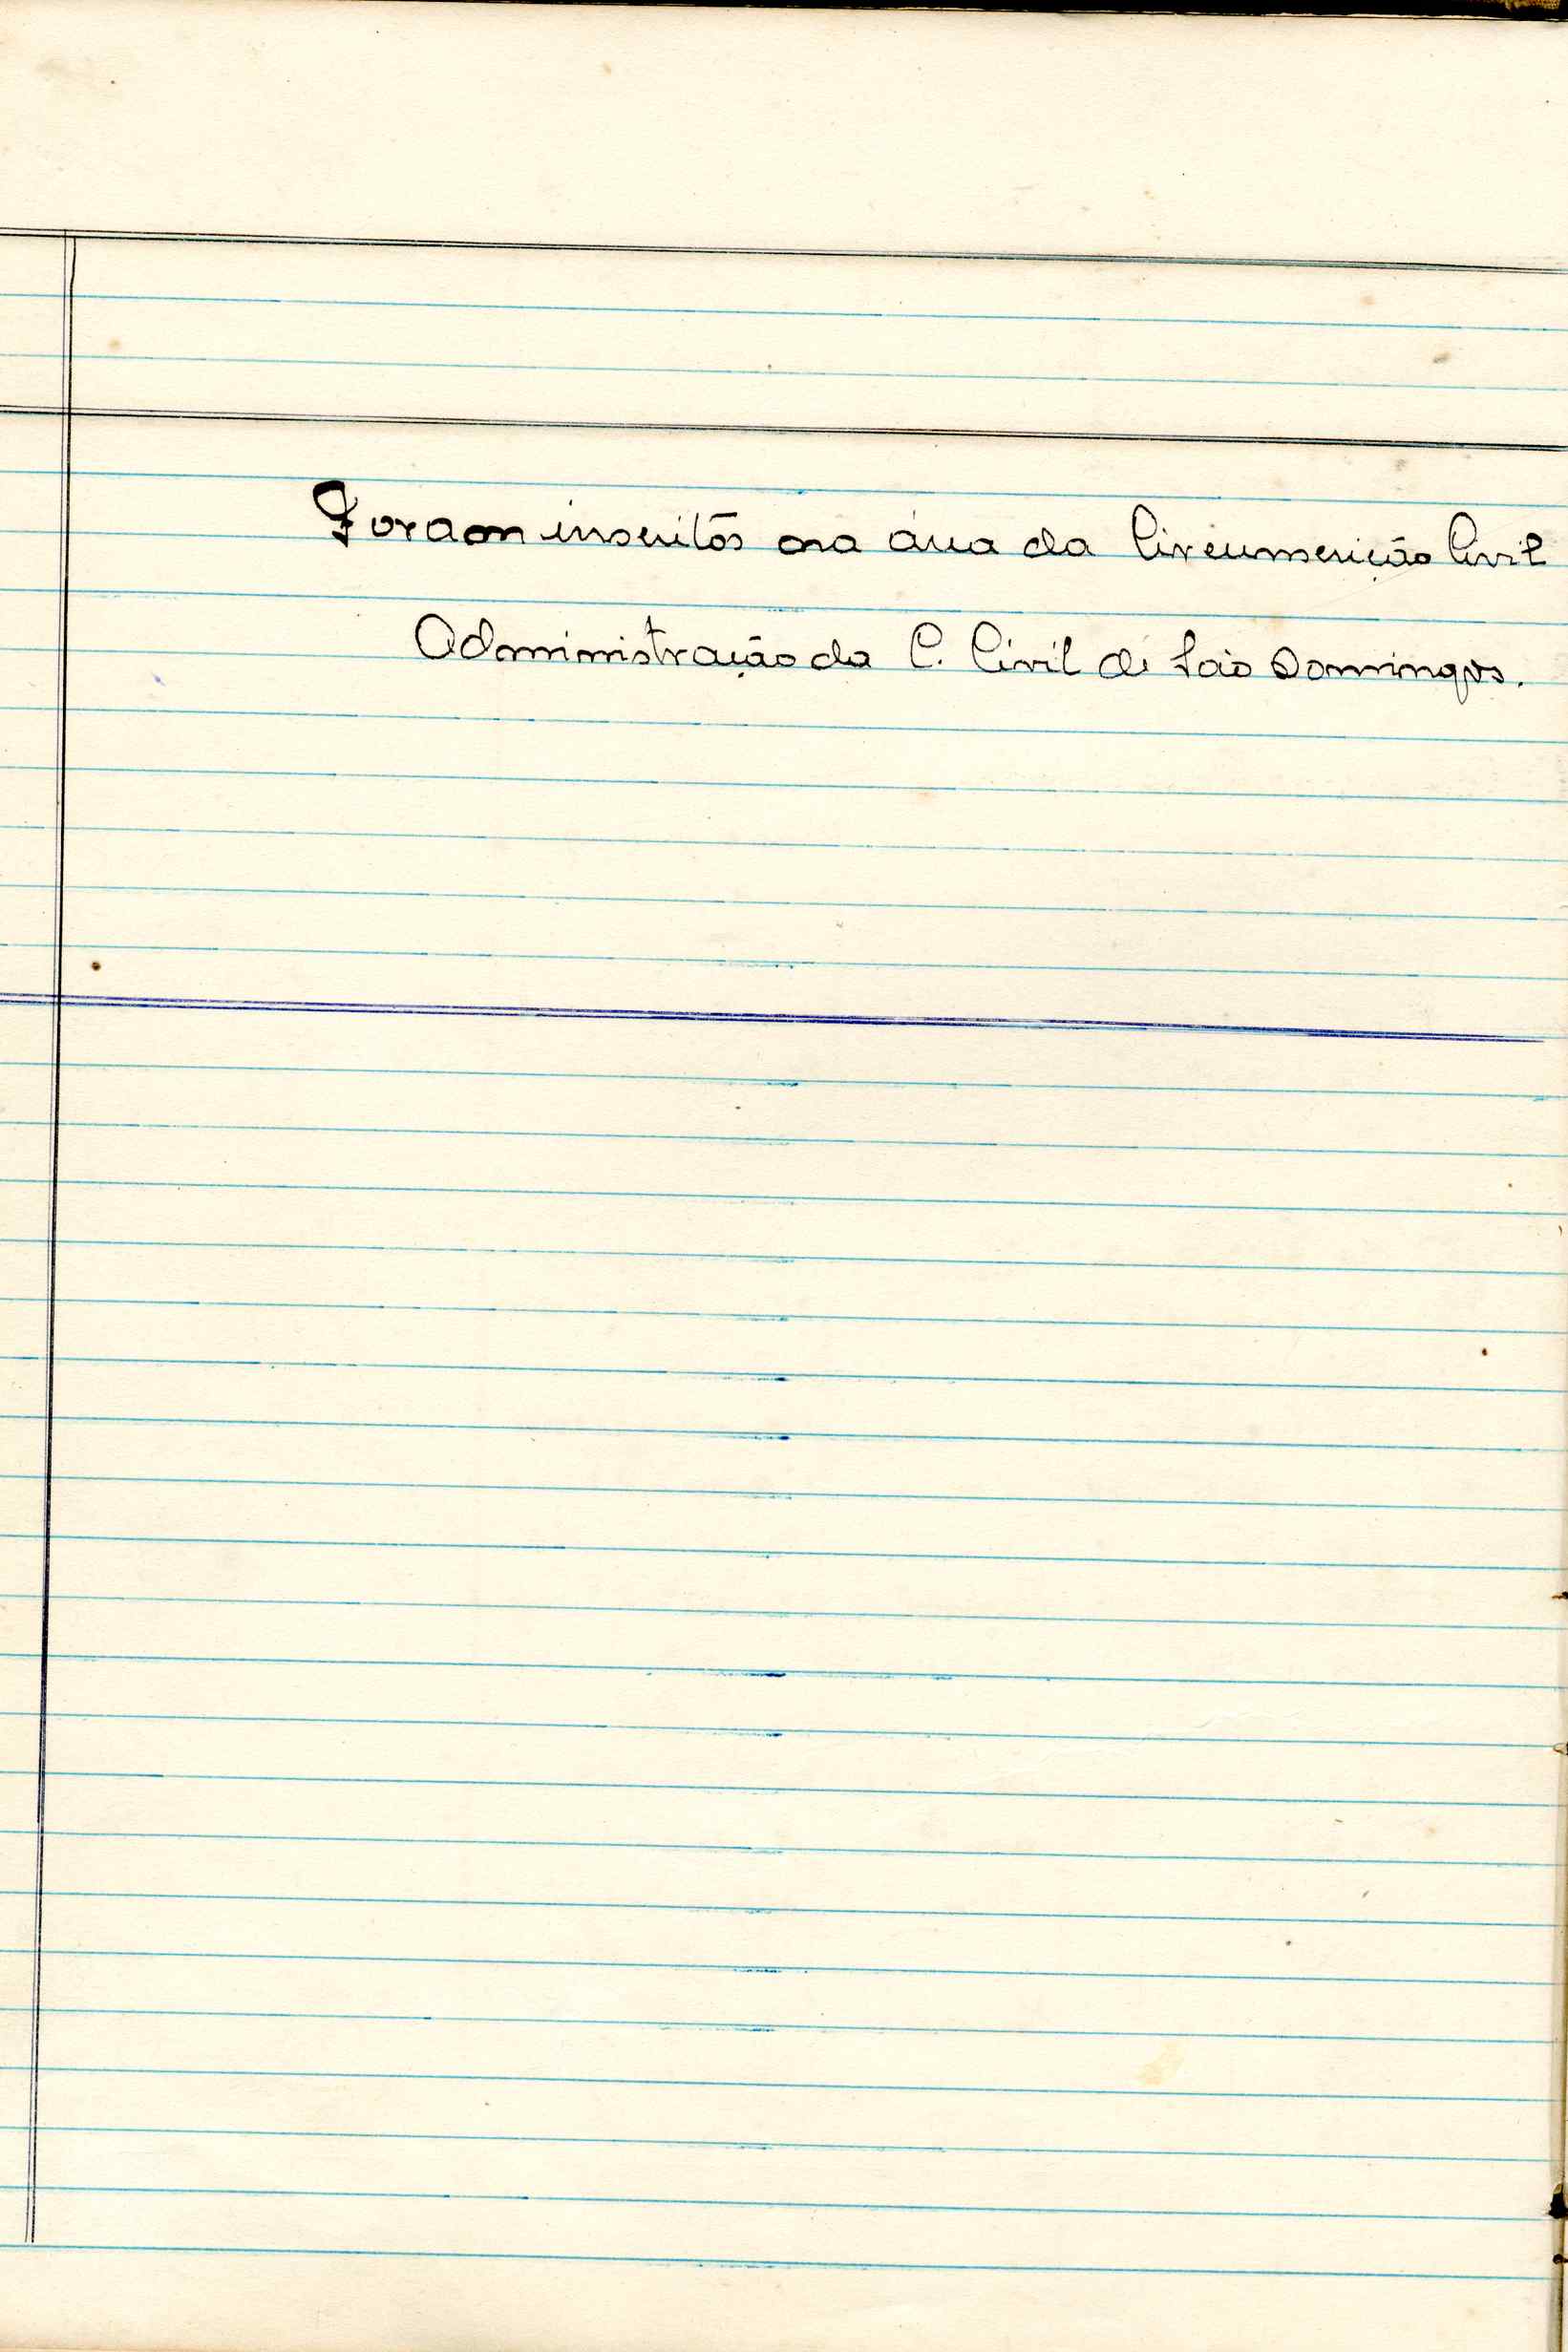 Foram inscritos na área da Circumscrição Civil
Administração da C. Civil de São Domingos.